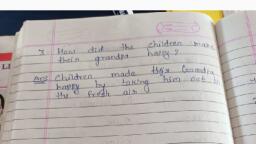 How did the children make
their grandpa happy?
Ans Children made their Grandpa
happy by taking him out in
the fresh air